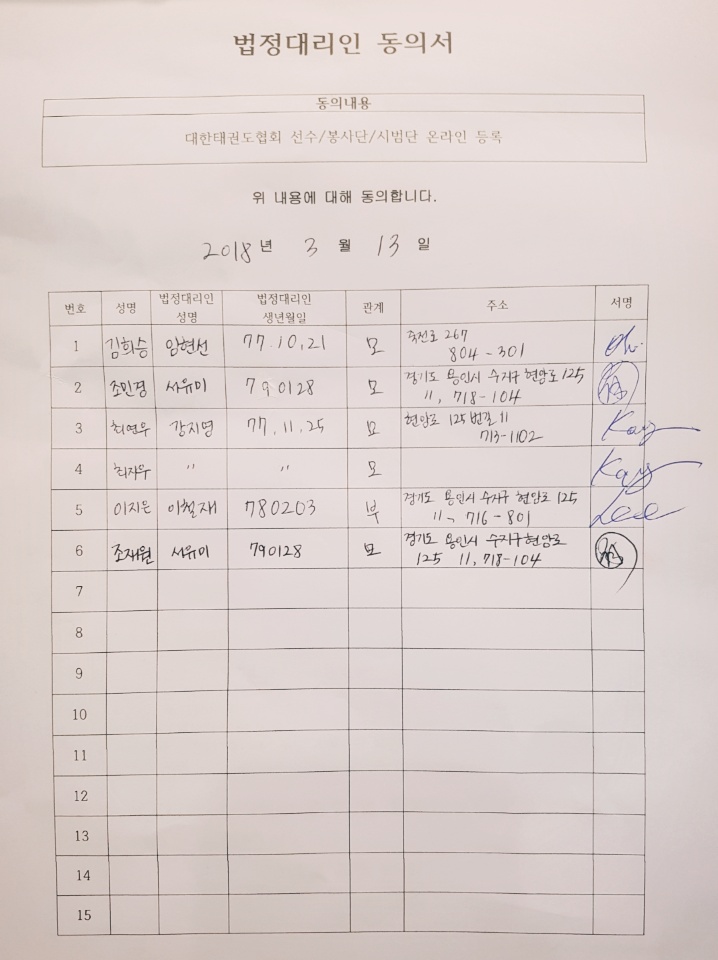 법정대리인 동의서
동의내용
대한태권도협회 선수/봉사단/시범단 온라인 등록
위 내용에 대해 동의합니다.
2018 년 3 월 13 일
번호 성명 법정대리인 성명 법정대리인 생년월일 관계 주소 서명
1 김희승 임현선 77.10.21 모 죽전로 267
804-301
2 조민경 서유미 790128 모 경기도 용인시 수지구 현암로 125
11, 718-104
3 최연우 강지영 77.11.25 모 현암로 125번길 11
713-1102
Kang
4 최자우 〃 〃 모
Kang
5 이지은 이철재 780203 부 경기도 용인시 수지구 현암로 125
11, 716-801
Lee
6 조재원 서유미 790128 모 경기도 용인시 수지구 현암로
125 11, 718-104
7
8
9
10
11
12
13
14
15